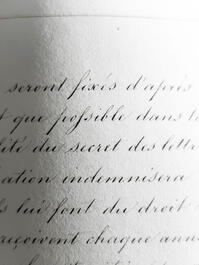 seront fixés d'après
que possible dans
lité du secret des lettr
ation indemnisera
lui font du droit
reçoivent chaque ann